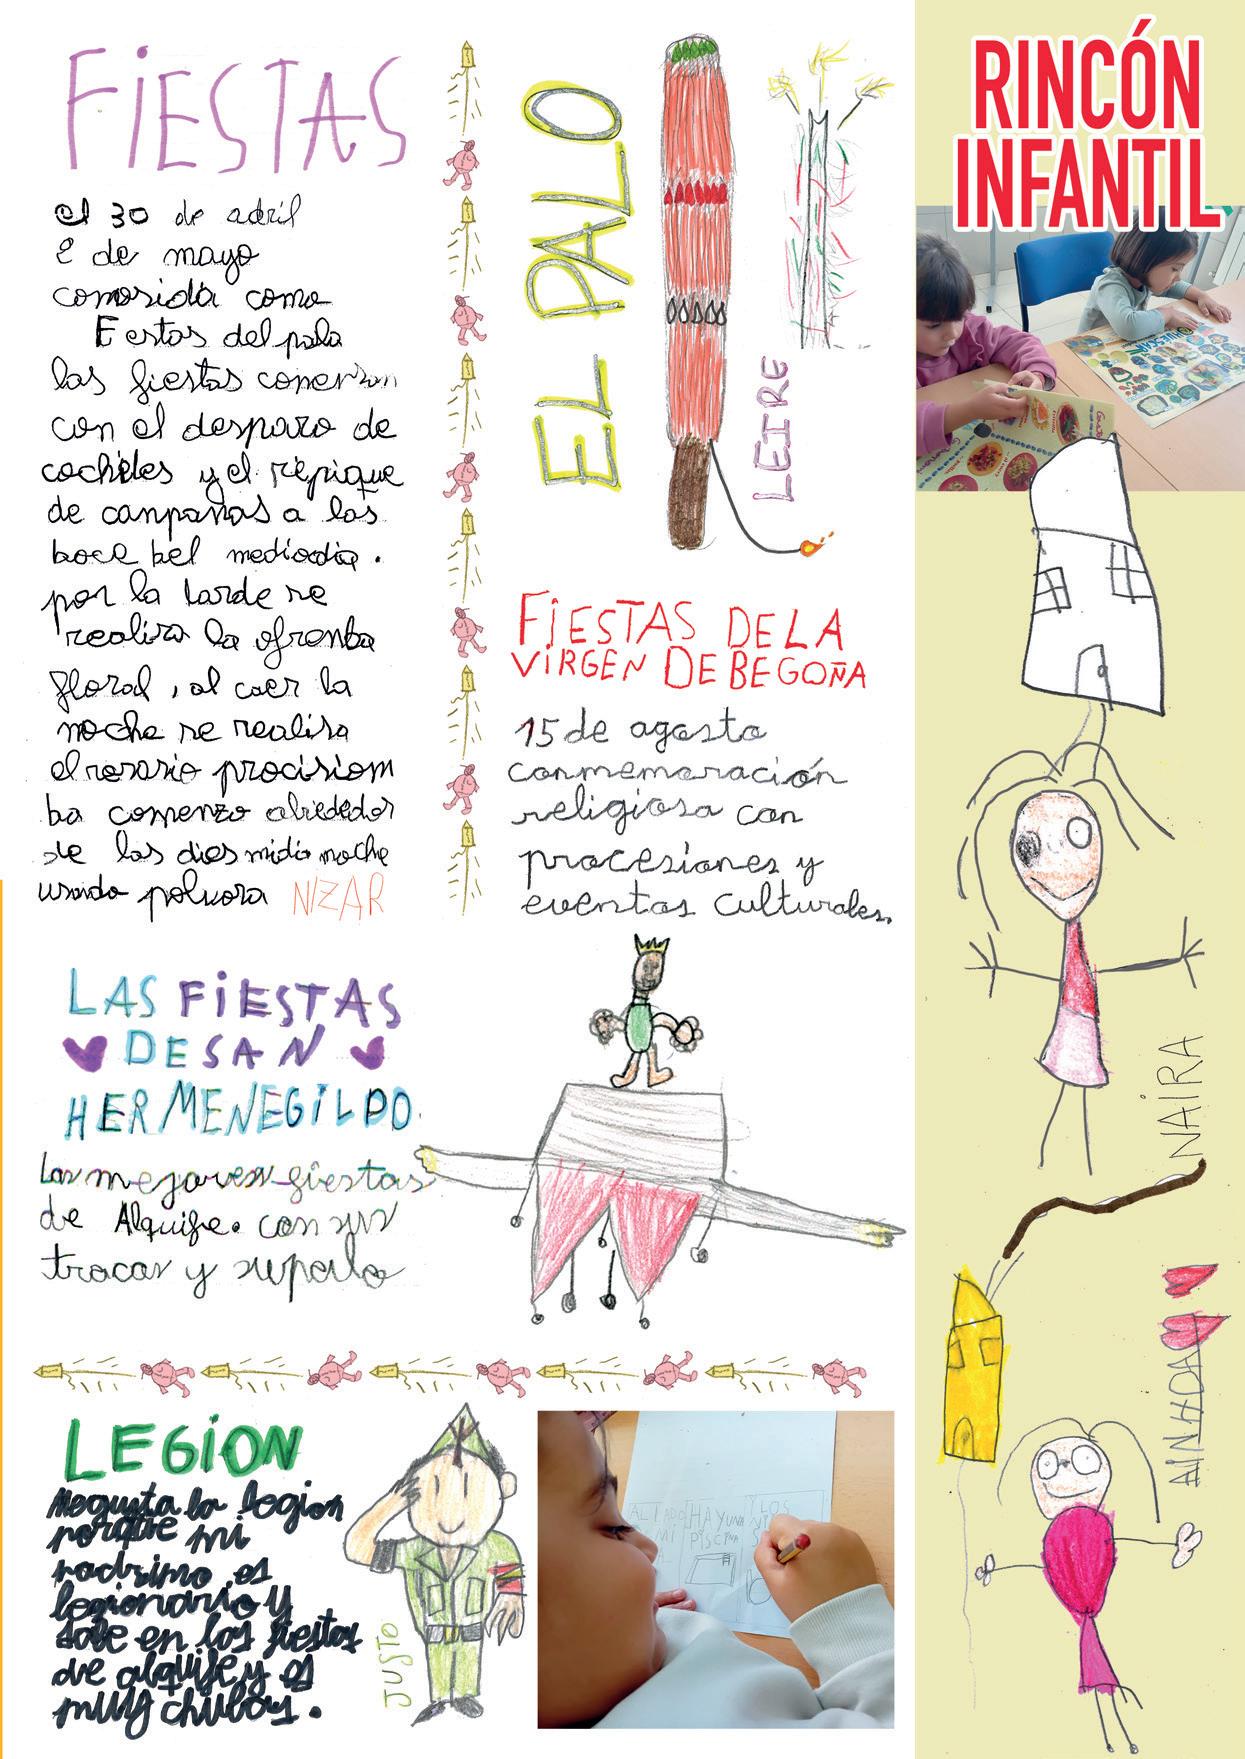 FiESTAS
el 30 de adril
2 de mayo
conosida como
Festas del palo
las fiestas comensan
con el desparo de
cochetes y el repique
de canpanas a las
boce bel mediodia.
por la tarde se
realisa la ofrenba
floral, al caer la
noche se realisa
el rosario procisiom
ba comenzo alrededor
de las dies midio noche
usando polvora NIZAR
EL PALO
LEIRE
FiESTAS DE LA
ViRGEN DE BEGOÑA
15 de agosto
conmemoración
religiosa con
procesiones y
eventos culturales.
LAS FiESTAS
DE SAN
HERMENEGiLDO.
Las mejores fiestas
de Alquife. con sus
tracas y su palo
LEGiON
Me gusta la legion
porque mi
padrino es
legionario y
sale en las fiestas
de alquife y es
muy chulas.
JUSTO
AL LADO HAY UNA Y LOS
MI PISCINA
RINCÓN
INFANTIL
NAIRA
AINHOA